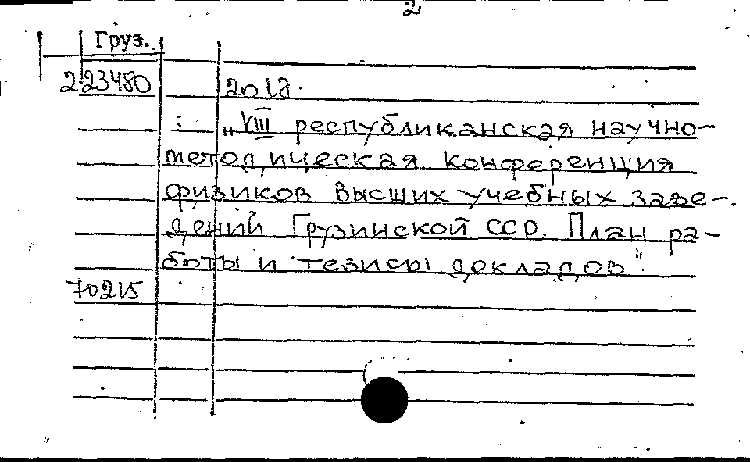 2
Груз.
223480 2018.
„VIII республиканская научно-
методическая конференция
физиков высших учебных заве-
дений Грузинской ССР. План ра-
боты и тезисы докладов"
70215